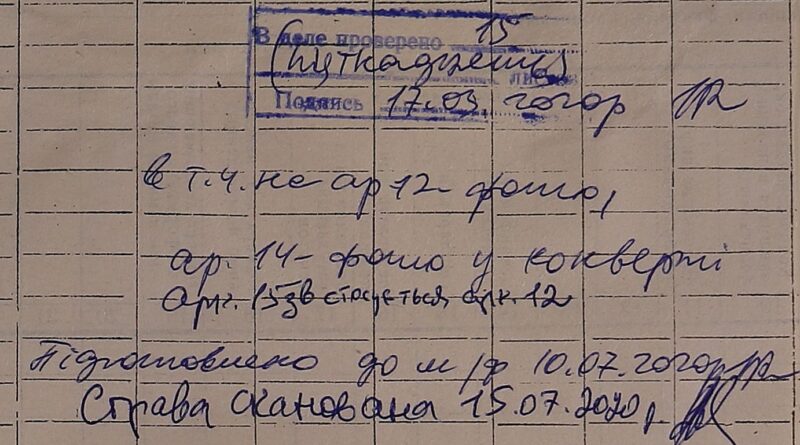 В деле проверено 15
(пʼятнадцять) листов
Подпись 17.03.2020р
в т.ч. на ар 12 фото,
ар. 14 - фото у конверті
Арк. 15зв стосується арк. 12
Підготовлено до м/ф 10.07.2020р
Справа сканована 15.07.2020 р.